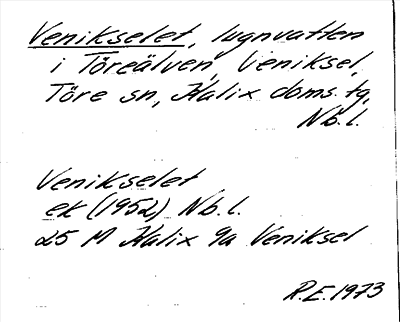 Venikselet, lugnvatten
i Töreälven, Veniksel,
Töre sn, Kalix doms. tg,
Nb.l.
Venikselet
ek (1952) Nb.l.
25 M Kalix 9a Veniksel
R.E. 1973